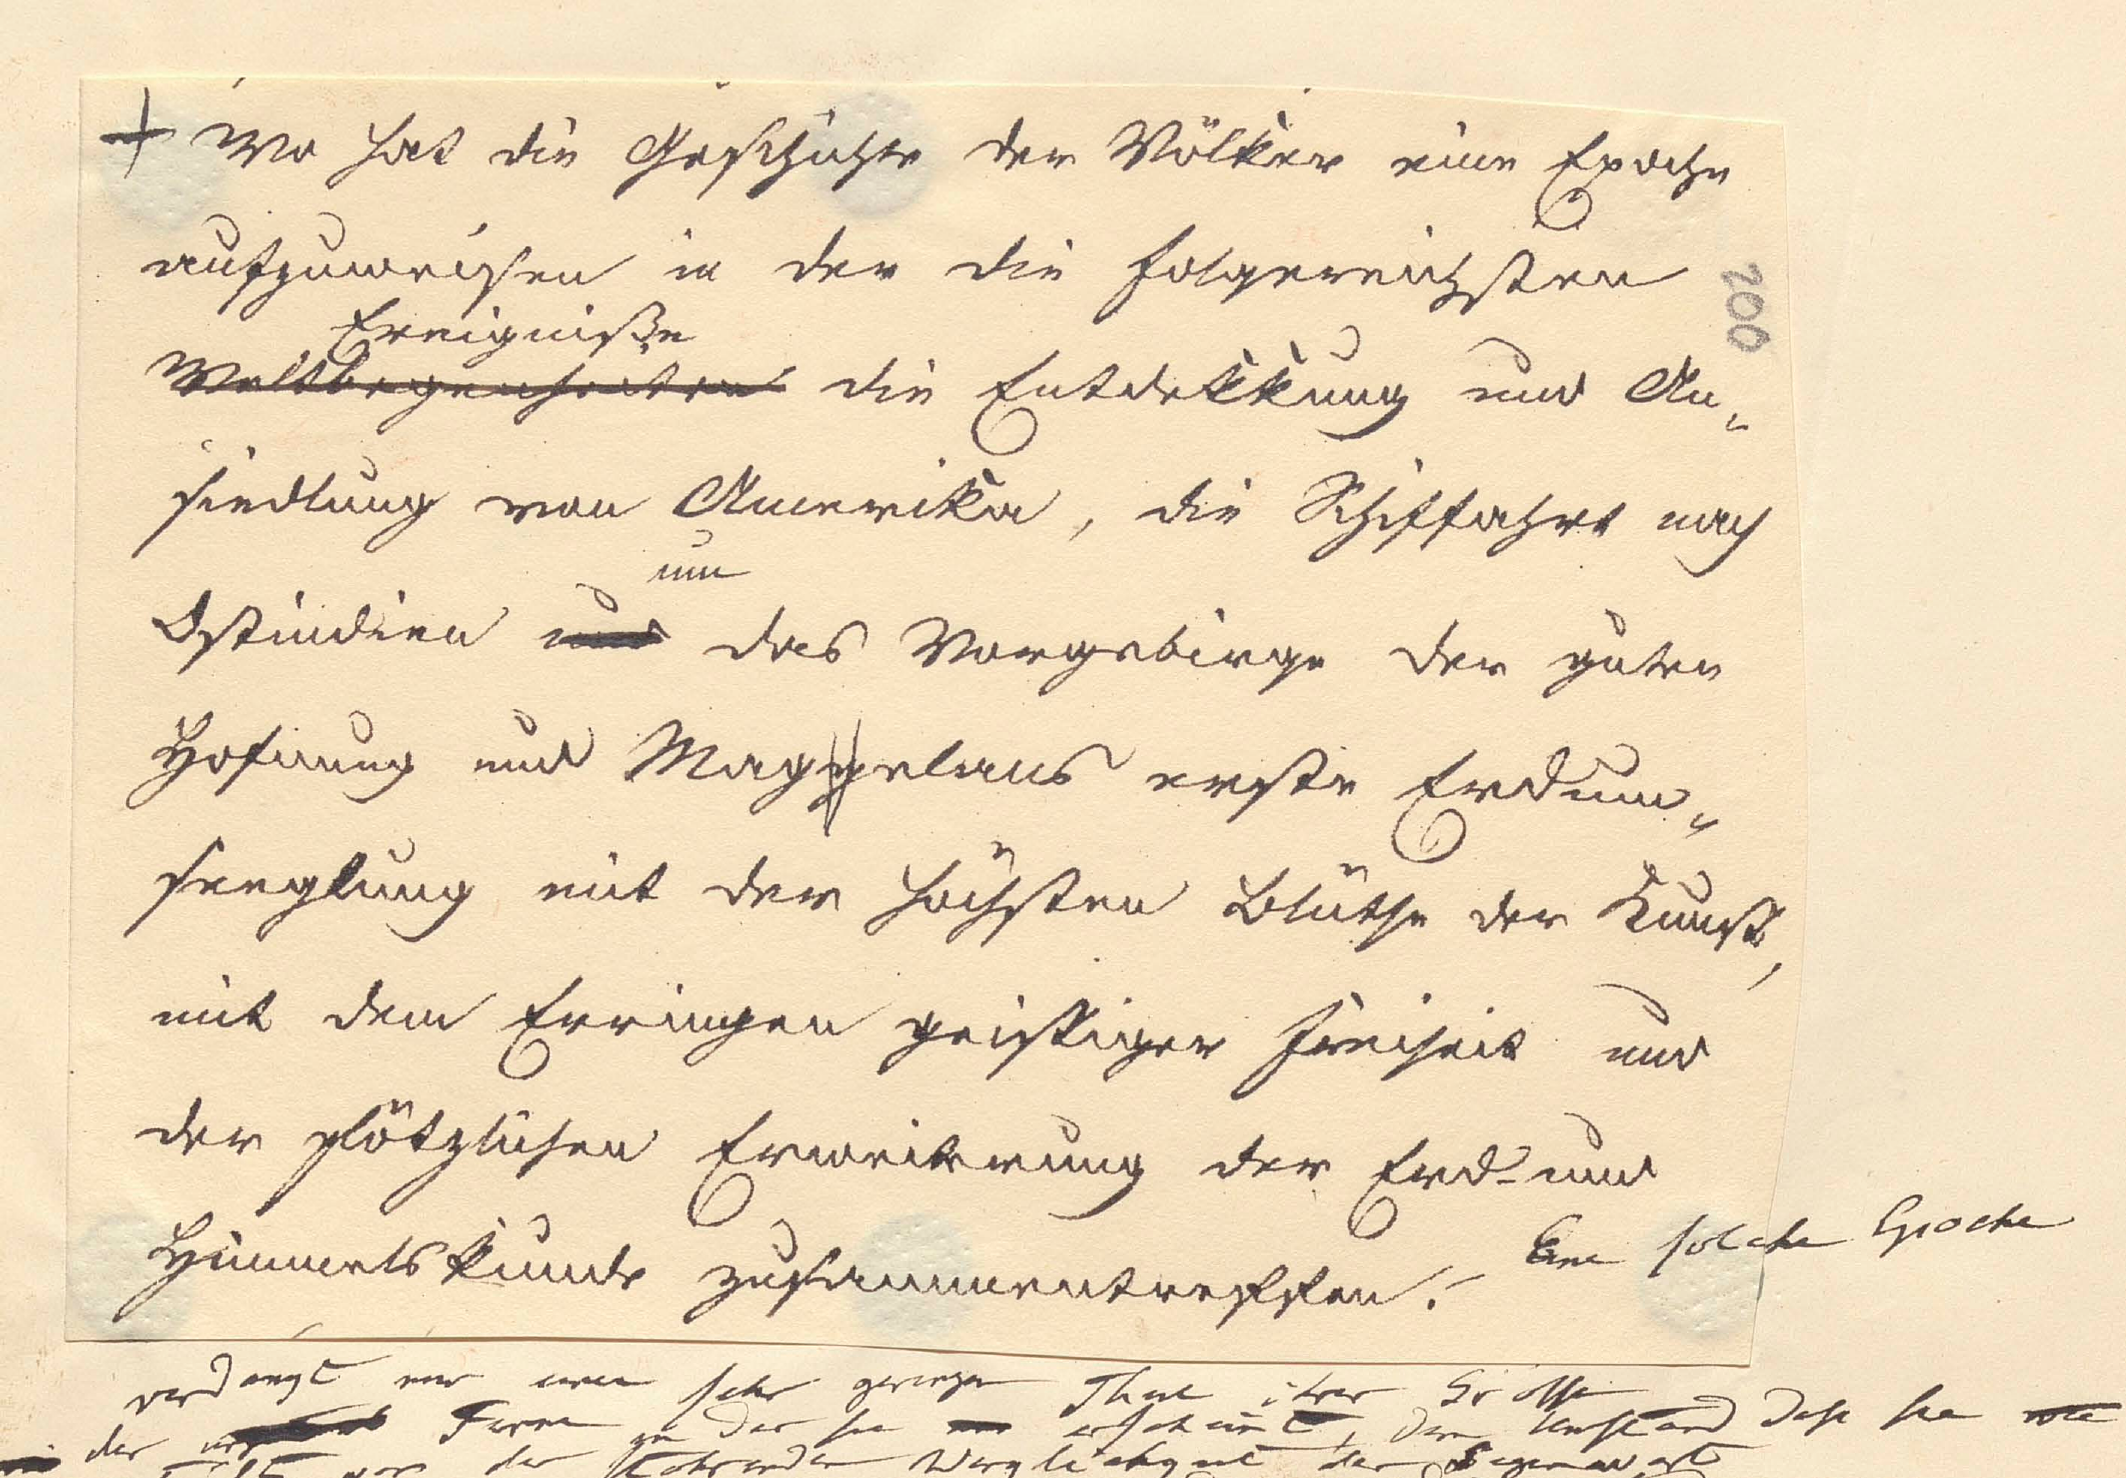 + Wo hat die Geschichte der Völker eine Epoche
aufzuweisen in der die folgereichsten
Ereigniße
Weltbegenheiten die Entdekkung und An„
siedlung von Amerika, die Schiffahrt nach
um
Ostindien und das Vorgebirge der guten
Hofnung und Maggelans erste Erdum„
seeglung mit der höchsten Blüthe der Kunst,
mit dem Erringen geistiger Freiheit und
der plötzlichen Erweiterung der Erd- und
Himmelskunde zusammentreffen! Eine solche Epoche
200
verdankt nur einen sehr geringen Theil ihrer Größe
der Ferne in der sie erscheint, dem Umstand daß sie
der Wirklichkeit der Gegenwart